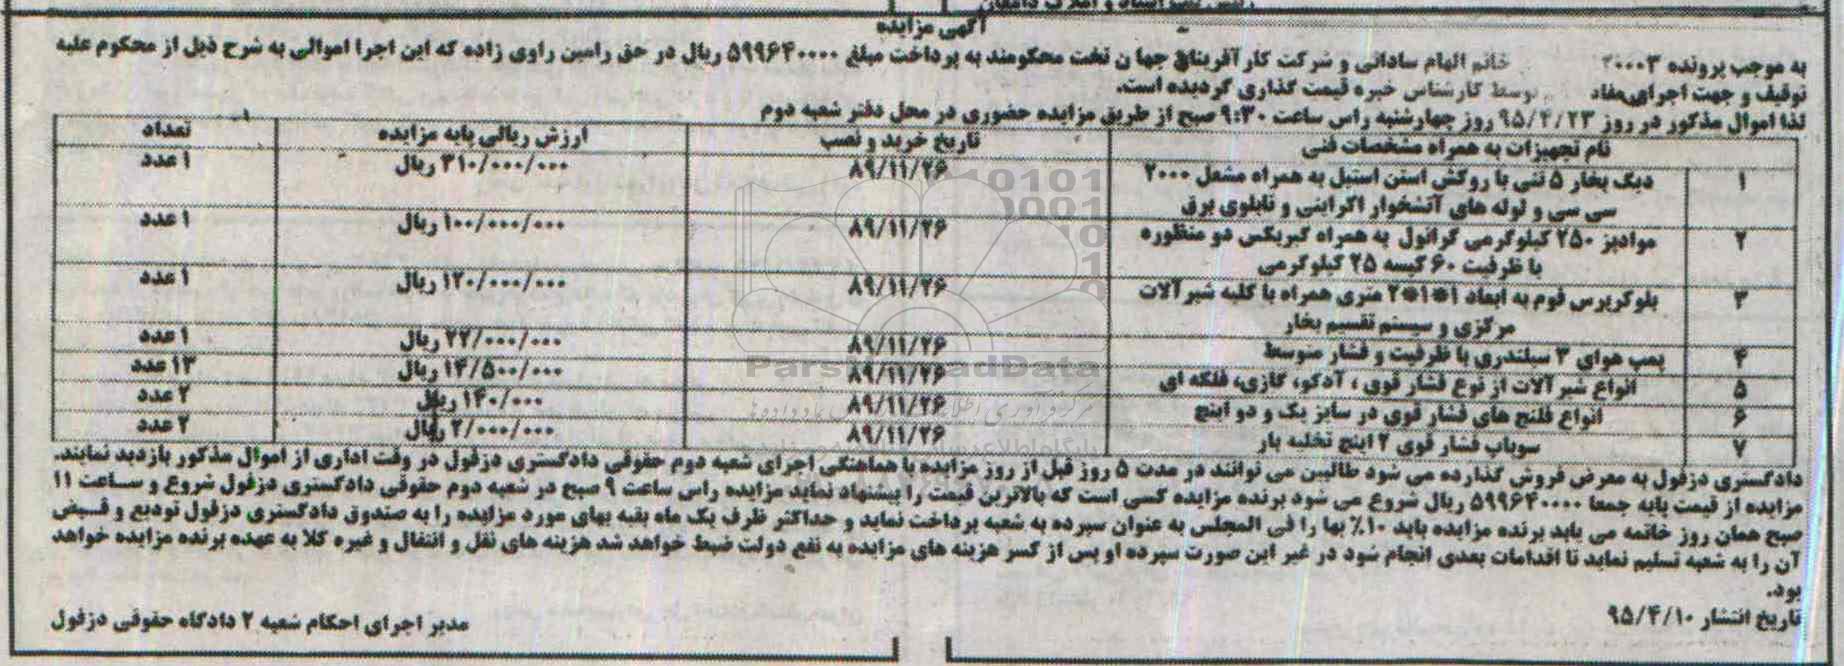 رئیس ثبت اسناد و املاک دامغان
آگهی مزایده
به موجب پرونده ۲۰۰۰۳ خانم الهام ساداتی و شرکت کار آفرینان جهان تخت محکومند به پرداخت مبلغ ۵۹۹۶۴۰۰۰۰ ریال در حق رامین راوی زاده که این اجرا اموالی به شرح ذیل از محکوم علیه
توقیف و جهت اجرای مفاد توسط کارشناس خبره قیمت گذاری گردیده است.
لذا اموال مذکور در روز ۹۵/۴/۲۳ روز چهارشنبه راس ساعت ۹:۳۰ صبح از طریق مزایده حضوری در محل دفتر شعبه دوم
نام تجهیزات به همراه مشخصات فنی تاریخ خرید و نصب ارزش ریالی پایه مزایده تعداد
۱ دیگ بخار ۵ تنی با روکش استن استیل به همراه مشعل ۲۰۰۰ ۸۹/۱۱/۲۶ ۳۱۰/۰۰۰/۰۰۰ ریال ۱ عدد
سی سی و لوله های آتشخوار اکراینی و تابلوی برق
۲ موادپز ۲۵۰ کیلوگرمی گرانول به همراه گیربکس دو منظوره ۸۹/۱۱/۲۶ ۱۰۰/۰۰۰/۰۰۰ ریال ۱ عدد
با ظرفیت ۶۰ کیسه ۲۵ کیلوگرمی
۳ بلوکرپرس فوم به ابعاد ۱*۱*۲ متری همراه با کلیه شیرآلات ۸۹/۱۱/۲۶ ۱۲۰/۰۰۰/۰۰۰ ریال ۱ عدد
مرکزی و سیستم تقسیم بخار
۴ پمپ هوای ۳ سیلندری با ظرفیت و فشار متوسط ۸۹/۱۱/۲۶ ۲۲/۰۰۰/۰۰۰ ریال ۱ عدد
۵ انواع شیرآلات از نوع فشار قوی ، آدکو، گازی، فلکه ای ۸۹/۱۱/۲۶ ۱۴/۵۰۰/۰۰۰ ریال ۱۳ عدد
۶ انواع فلنج های فشار قوی در سایز یک و دو اینچ ۸۹/۱۱/۲۶ ۱۴۰/۰۰۰ ریال ۲ عدد
۷ سوپاپ فشار قوی ۲ اینچ تخلیه بار ۸۹/۱۱/۲۶ ۲/۰۰۰/۰۰۰ ریال ۲ عدد
دادگستری دزفول به معرض فروش گذارده می شود طالبین می توانند در مدت ۵ روز قبل از روز مزایده با هماهنگی اجرای شعبه دوم حقوقی دادگستری دزفول در وقت اداری از اموال مذکور بازدید نمایند.
مزایده از قیمت پایه جمعا ۵۹۹۶۴۰۰۰۰ ریال شروع می شود برنده مزایده کسی است که بالاترین قیمت را پیشنهاد نماید مزایده راس ساعت ۹ صبح در شعبه دوم حقوقی دادگستری دزفول شروع و ساعت ۱۱
صبح همان روز خاتمه می یابد برنده مزایده باید ۱۰٪ بها را فی المجلس به عنوان سپرده به شعبه پرداخت نماید و حداکثر ظرف یک ماه بقیه بهای مورد مزایده را به صندوق دادگستری دزفول تودیع و قبض
آن را به شعبه تسلیم نماید تا اقدامات بعدی انجام شود در غیر این صورت سپرده او پس از کسر هزینه های مزایده به نفع دولت ضبط خواهد شد هزینه های نقل و انتقال و غیره کلا به عهده برنده مزایده خواهد
بود.
تاریخ انتشار ۹۵/۴/۱۰
مدیر اجرای احکام شعبه ۲ دادگاه حقوقی دزفول